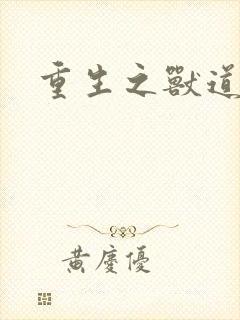 重生之獸道
黃慶優